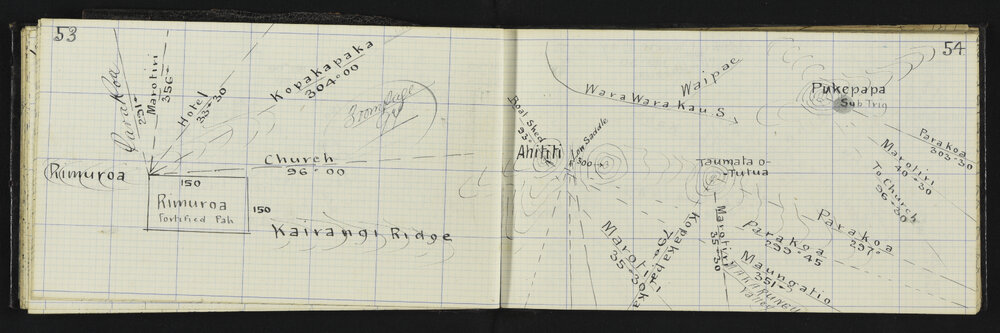 53
Parakoa
291°
Marotiri
356°
Hotel
33°30
Kopakapaka
304°00
Church
96°00
Rimuroa
150
Rimuroa
Fortified Pah
150
Kairangi Ridge
54
Waipae
Wara Wara Kau S
Pukepapa
Sub Trig
Boat Shed
93°
Ahititi
Low Saddle
300
Taumata o-
-Tutua
Parakoa
303°30
Marotiri
40°30
To Church
96°30
Marotiri
35°30
Kopakapa
Marotiri
35°30
Parakoa
299°45
Parakoa
297°
Maungatio
351°